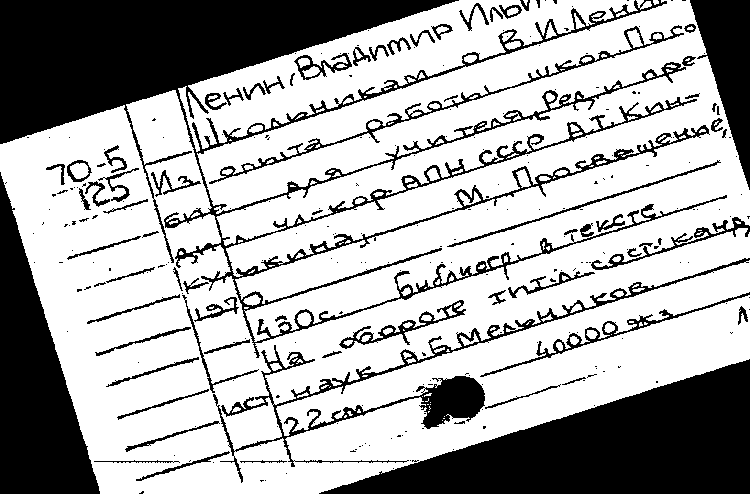 Ленин, Владимир Ильич
Школьникам о В.И.Ленине
70-5
125
Из опыта работы школ. Посо-
бие для учителя. Ред. и пре-
дисл. чл-кор. АПН СССР А.Т. Кин-
кулькина, М., "Просвещение",
1970.
430с. Библиогр. в тексте.
На обороте тит.л. сост: канд.
ист. наук А.Б.Мельников.
22 см 40000 экз